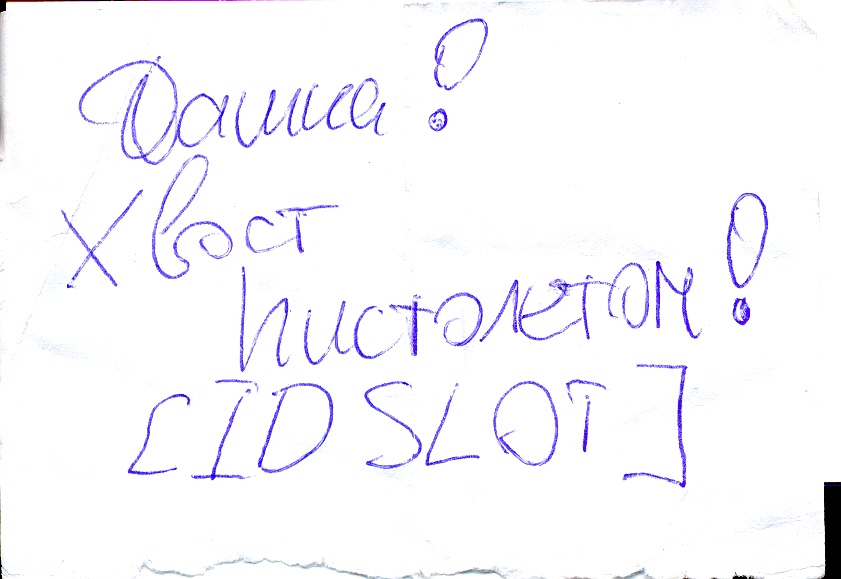 Дашка!
Хвост
пистолетом!
[ID SLOT]